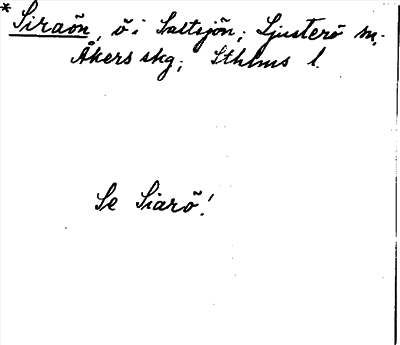 * Siraön, ö i Saltsjön; Ljusterö sn,
Åkers skg; Sthlms l.
Se Siarö!